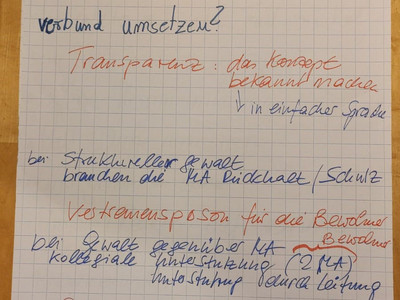 verbund umsetzen?
Transparenz: das Konzept
bekannt machen
↓ in einfacher Sprache
bei Struktureller gewalt
brauchen die MA Rückhalt / Schutz
Vertrauensperson für die Bewohner
Bewohner
bei Gewalt gegenüber MA
Kollegiale Unterstützung (2 MA)
Unterstützung durch Leitung